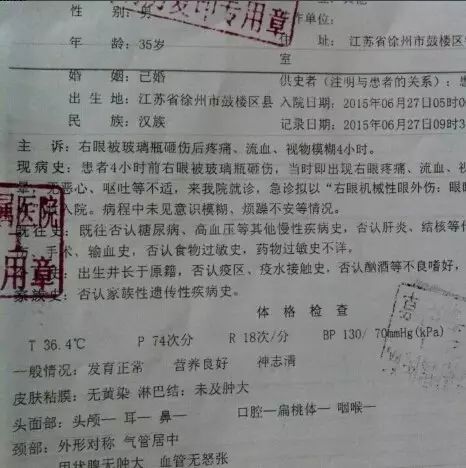 性 别：男
专用章
作单位：
年 龄：35岁
住 址：江苏省徐州市鼓楼区
室
婚 姻：已婚
供史者（注明与患者的关系）：
出 生 地：江苏省徐州市鼓楼区县 入院日期：2015年06月27日05时
民 族：汉族
记录日期：2015年06月27日09时3
主 诉：右眼被玻璃瓶砸伤后疼痛、流血、视物模糊4小时。
现 病 史：患者4小时前右眼被玻璃瓶砸伤，当时即出现右眼疼痛、流血、
晕，无恶心、呕吐等不适，来我院就诊，急诊拟以“右眼机械性眼外伤：眼
入院。病程中未见意识模糊、烦躁不安等情况。
属医院
用章
既往史：既往否认糖尿病、高血压等其他慢性疾病史，否认肝炎、结核等
手术、输血史，否认食物过敏史，药物过敏史不详。
出生并长于原籍，否认疫区、疫水接触史，否认酗酒等不良嗜好，
家族史：否认家族性遗传性疾病史。
体 格 检 查
T 36.4℃ P 74次/分 R 18次/分 BP 130/ 70mmHg(kPa)
一般情况：发育正常 营养良好 神志清
皮肤粘膜：无黄染 淋巴结：未及肿大
头面部：头颅— 耳— 鼻— 口腔—扁桃体— 咽喉—
颈部：外形对称 气管居中
甲状腺无肿大 血管无怒张